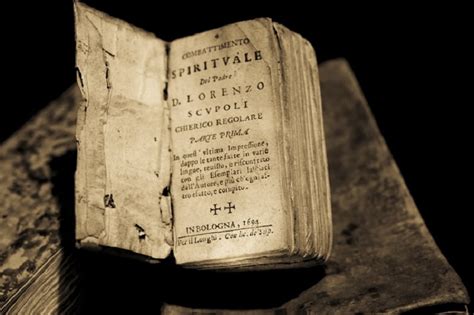 COMBATTIMENTO
SPIRITVALE
Del Padre
D. LORENZO
SCVPOLI
CHIERICO REGOLARE
PARTE PRIMA
In quest' vltima Impressione,
dappo le tante fatte in varie
lingue, reuisto, e riscontrato
con gli Esemplari lasciati
dall'Autore, e più ch'ogni al-
tro esatto, e compito.
IN BOLOGNA,
Per il Longhi. Con lic. de' Sup.